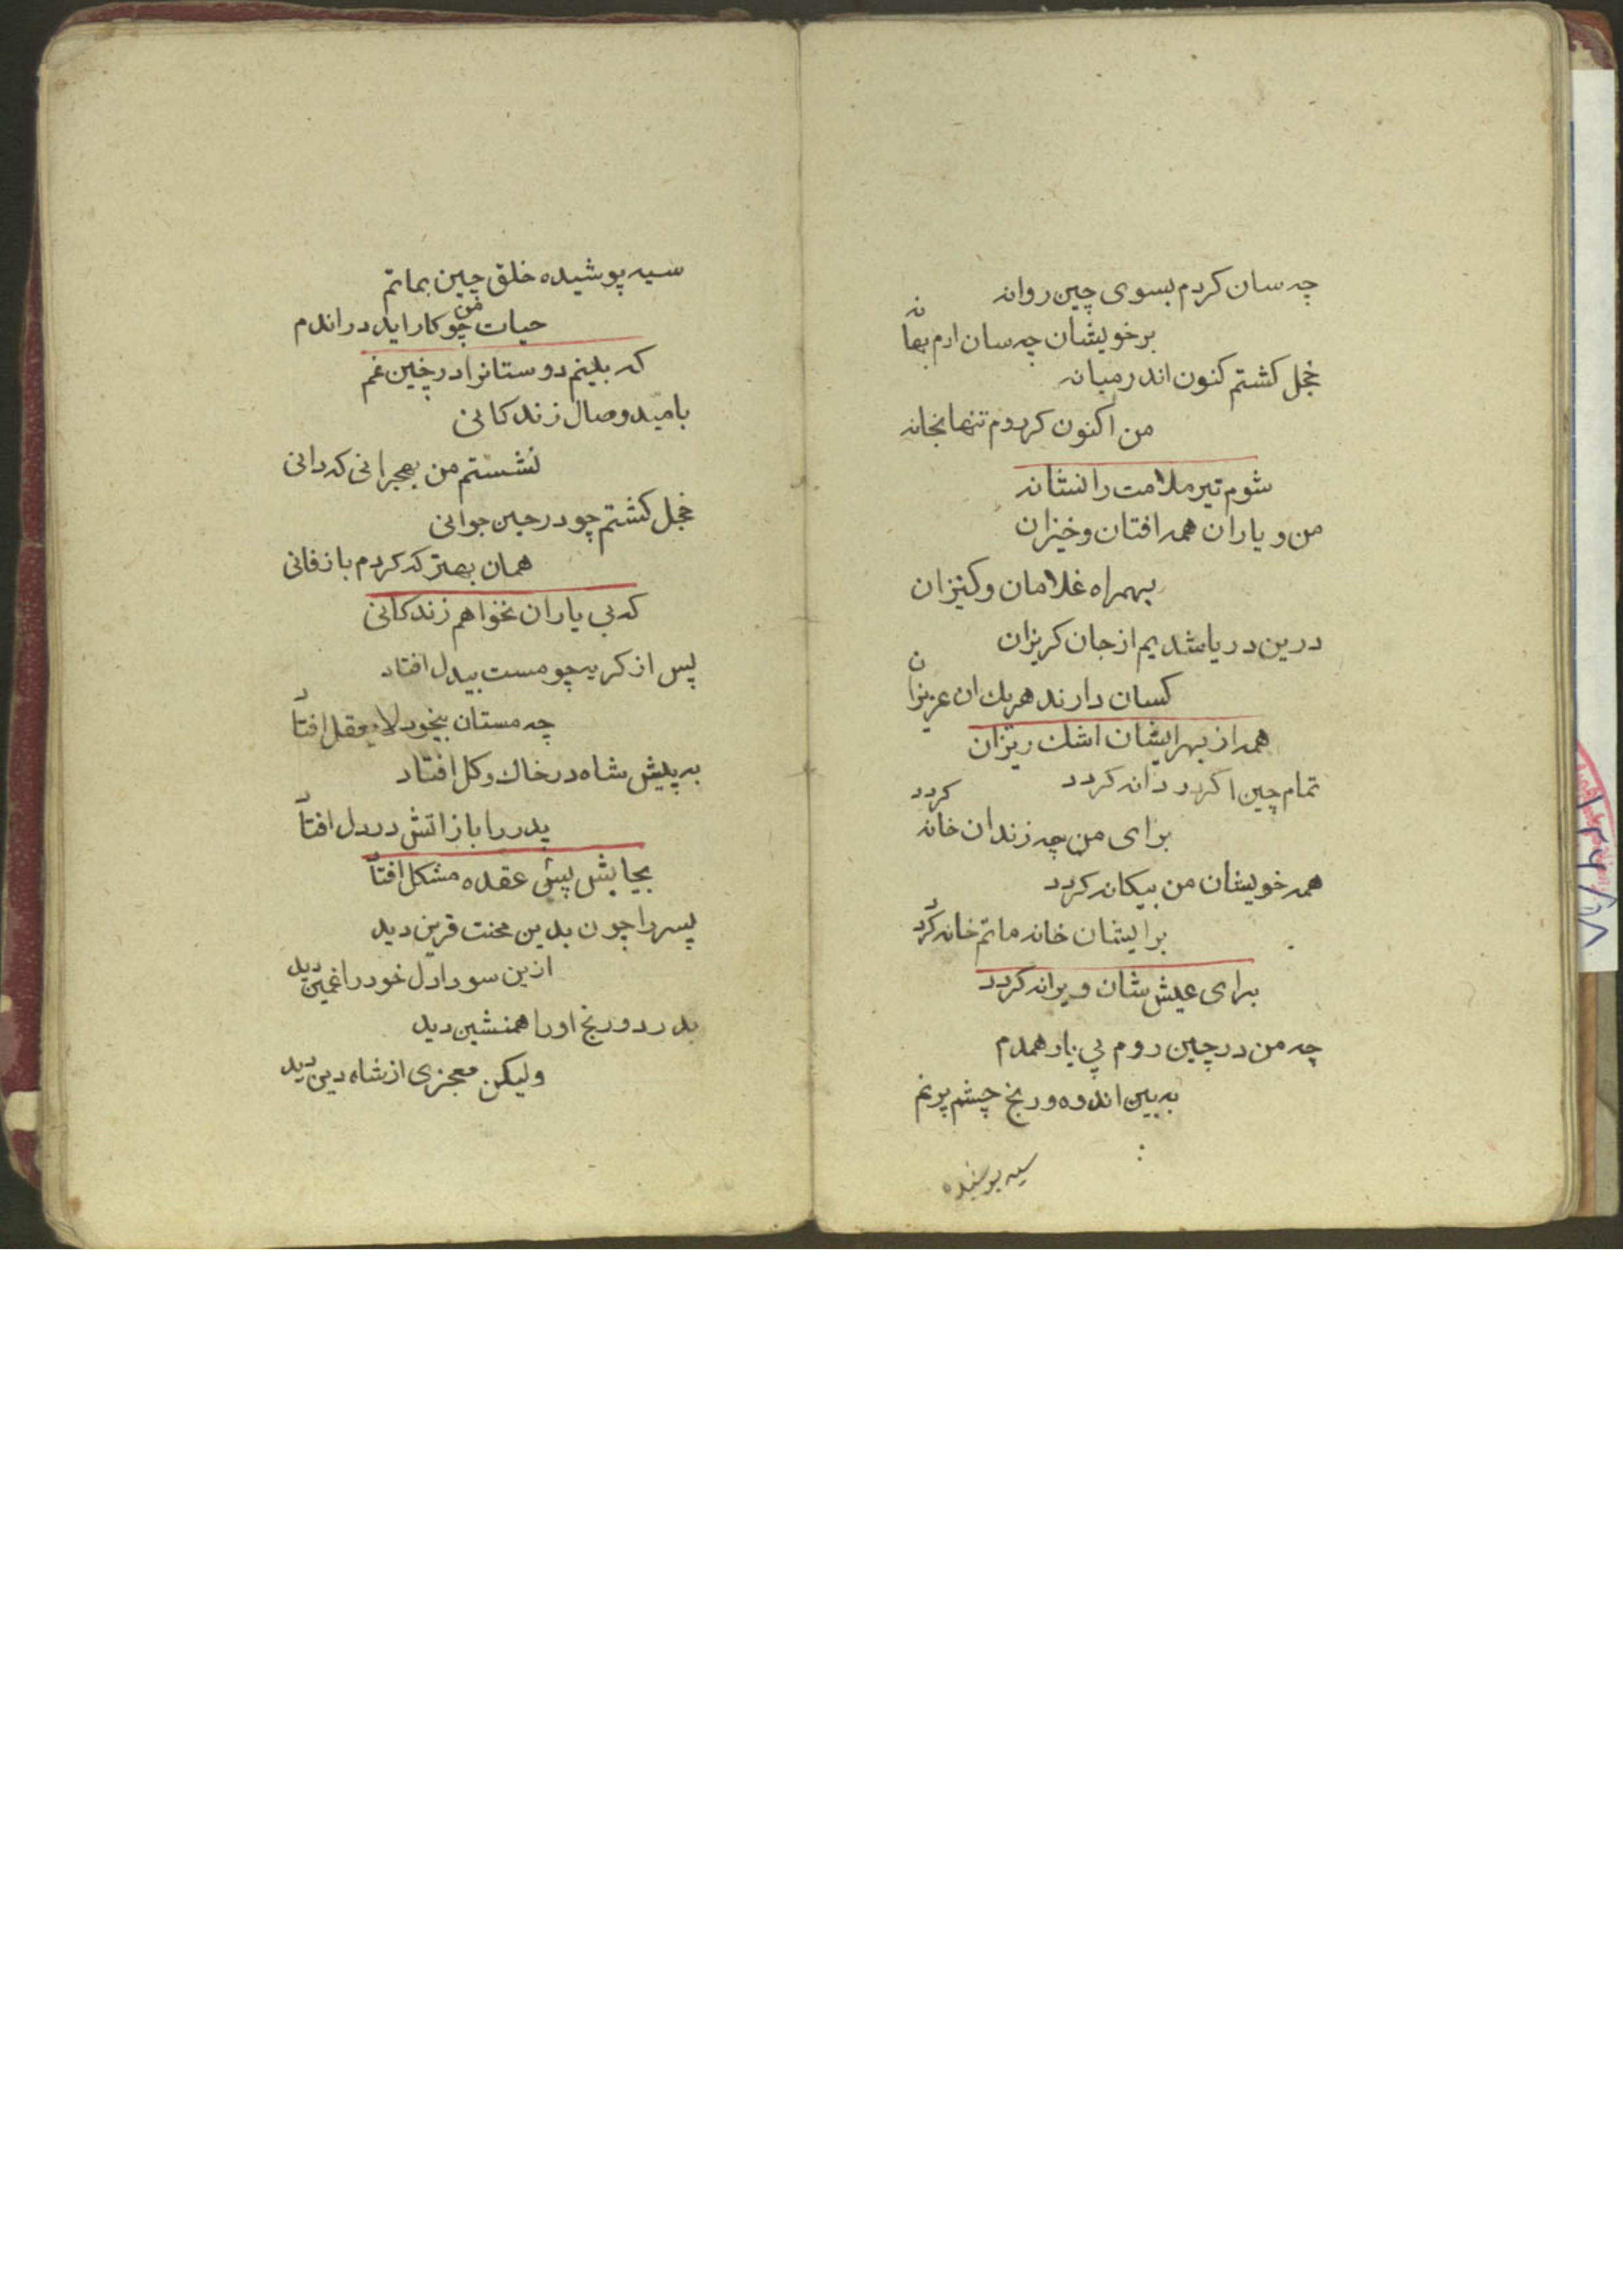 چه سان کردم بسوی چین روانه
برخویشان چه سان ارم بهانه
خجل کشتم کنون اندر میانه
من اکنون کردوم تنها بخانه
شوم تیر ملامت را نشانه
من و یاران همه افتان و خیزان
بهمراه غلامان و کنیزان
درین دریا شدیم از جان کریزان
کسان دارند هریك ان عزیزان
همه از بهر ایشان اشك ریزان
تمام چین اکر دانه کردد
برای من چه زندان خانه کردد
همه خویشان من بیکانه کردد
برایشان خانه ماتم خانه کردد
برای عیش شان ویرانه کردد
چه من در چین روم بی یار همدم
به بین اندوه و رنج چشم پرنم
سیه پوشیده
سیه پوشیده خلق چین بماتم
حیات من چو کار اید در اندم
که بینم دوستانرا در چنین غم
بامید وصال زندکانی
نشستم من بهجرانی که دانی
خجل کشتم چو در حین جوانی
همان بهتر که کردم باز فانی
که بی یاران نخواهم زندکانی
پس از کریه چو مست بیدل افتاد
چه مستان بیخود لایعقل افتاد
به پیش شاه در خاك و کل افتاد
پدر را باز اتش در دل افتاد
بجایش پیش عقده مشکل افتاد
پسر را چون بدین محنت قرین دید
ازین سودا دل خود را غمین دید
بدرد و رنج اورا همنشین دید
ولیکن معجزی از شاه دین دید